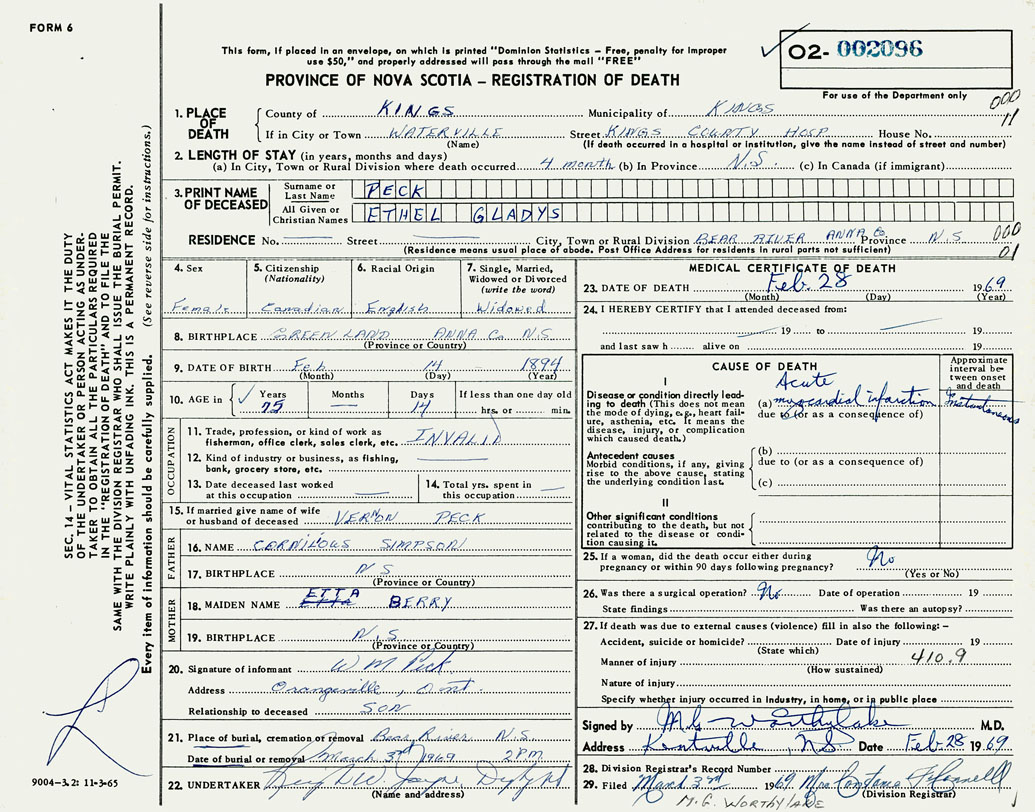 FORM 6
This form, if placed in an envelope, on which is printed "Dominion Statistics – Free, penalty for improper
use $50," and properly addressed will pass through the mail "FREE"
PROVINCE OF NOVA SCOTIA – REGISTRATION OF DEATH
02- 002096
For use of the Department only
000
11
1. PLACE OF DEATH County of KINGS Municipality of KINGS
If in City or Town WATERVILLE Street KINGS COUNTY HOSP. House No.
(Name) (If death occurred in a hospital or institution, give the name instead of street and number)
2. LENGTH OF STAY (in years, months and days)
(a) In City, Town or Rural Division where death occurred 4 month (b) In Province N.S. (c) In Canada (if immigrant)
3. PRINT NAME OF DECEASED
Surname or Last Name PECK
All Given or Christian Names ETHEL GLADYS
RESIDENCE No. Street City, Town or Rural Division BEAR RIVER ANNA Co. Province N.S.
000
01
(Residence means usual place of abode. Post Office Address for residents in rural parts not sufficient)
4. Sex
Female
5. Citizenship
(Nationality)
Canadian
6. Racial Origin
English
7. Single, Married,
Widowed or Divorced
(write the word)
Widowed
8. BIRTHPLACE GREENLAND ANNA Co N.S
(Province or Country)
9. DATE OF BIRTH Feb 14 1894
(Month) (Day) (Year)
10. AGE in Years Months Days If less than one day old
75 14 hrs. or min.
OCCUPATION
11. Trade, profession, or kind of work as
fisherman, office clerk, sales clerk, etc. INVALID
12. Kind of industry or business, as fishing,
bank, grocery store, etc.
13. Date deceased last worked
at this occupation
14. Total yrs. spent in
this occupation
15. If married give name of wife
or husband of deceased VERNON PECK
FATHER
16. NAME CORNILOUS SIMPSON
17. BIRTHPLACE N S
(Province or Country)
MOTHER
ETTA
18. MAIDEN NAME BERRY
19. BIRTHPLACE N.S
(Province or Country)
20. Signature of informant W M Peck
Address Orangeville, Ont.
Relationship to deceased SON
21. Place of burial, cremation or removal Bear River N.S.
Date of burial or removal March 3rd 1969 2PM
22. UNDERTAKER
(Name and address)
MEDICAL CERTIFICATE OF DEATH
23. DATE OF DEATH Feb. 28 1969
(Month) (Day) (Year)
24. I HEREBY CERTIFY that I attended deceased from:
19 to 19
and last saw h alive on 19
CAUSE OF DEATH
Approximate
interval be-
tween onset
and death
I
Disease or condition directly lead-
ing to death (This does not mean
the mode of dying, e.g., heart fail-
ure, asthenia, etc. It means the
disease, injury, or complication
which caused death.)
Acute
(a) myocardial infarction Instantaneous
due to (or as a consequence of)
Antecedent causes
Morbid conditions, if any, giving
rise to the above cause, stating
the underlying condition last.
(b)
due to (or as a consequence of)
(c)
II
Other significant conditions
contributing to the death, but not
related to the disease or condi-
tion causing it.
25. If a woman, did the death occur either during
pregnancy or within 90 days following pregnancy? No
(Yes or No)
26. Was there a surgical operation? No Date of operation 19
State findings Was there an autopsy?
27. If death was due to external causes (violence) fill in also the following: –
Accident, suicide or homicide? Date of injury 19
(State which)
Manner of injury 410.9
(How sustained)
Nature of injury
Specify whether injury occurred in industry, in home, or in public place
Signed by M.G. Worthylake M.D.
Address Kentville, NS Date Feb. 28 1969
28. Division Registrar's Record Number
29. Filed March 3rd 1969 Mrs
(Division Registrar)
M.G. WORTHYLAKE
SEC. 14 – VITAL STATISTICS ACT MAKES IT THE DUTY
OF THE UNDERTAKER OR PERSON ACTING AS UNDER-
TAKER TO OBTAIN ALL THE PARTICULARS REQUIRED
IN THE "REGISTRATION OF DEATH" AND TO FILE THE
SAME WITH THE DIVISION REGISTRAR WHO SHALL ISSUE THE BURIAL PERMIT.
WRITE PLAINLY WITH UNFADING INK. THIS IS A PERMANENT RECORD.
Every item of information should be carefully supplied. (See reverse side for instructions.)
9004–3.2: 11-3-65